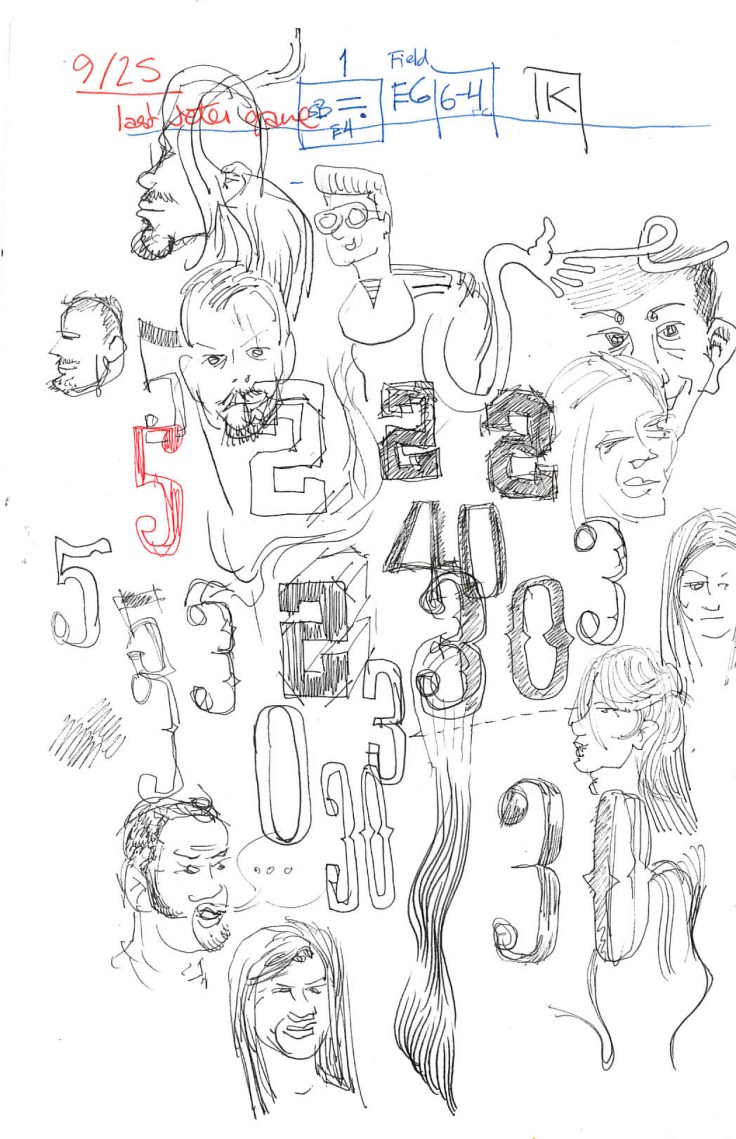 9/25
last Jeter game
1
Field
=.
E4
E6
6-4
FC
K
5
2
2
2
5
40
3
5
3
2
3
0
5
3
3
0
30
...
3
0